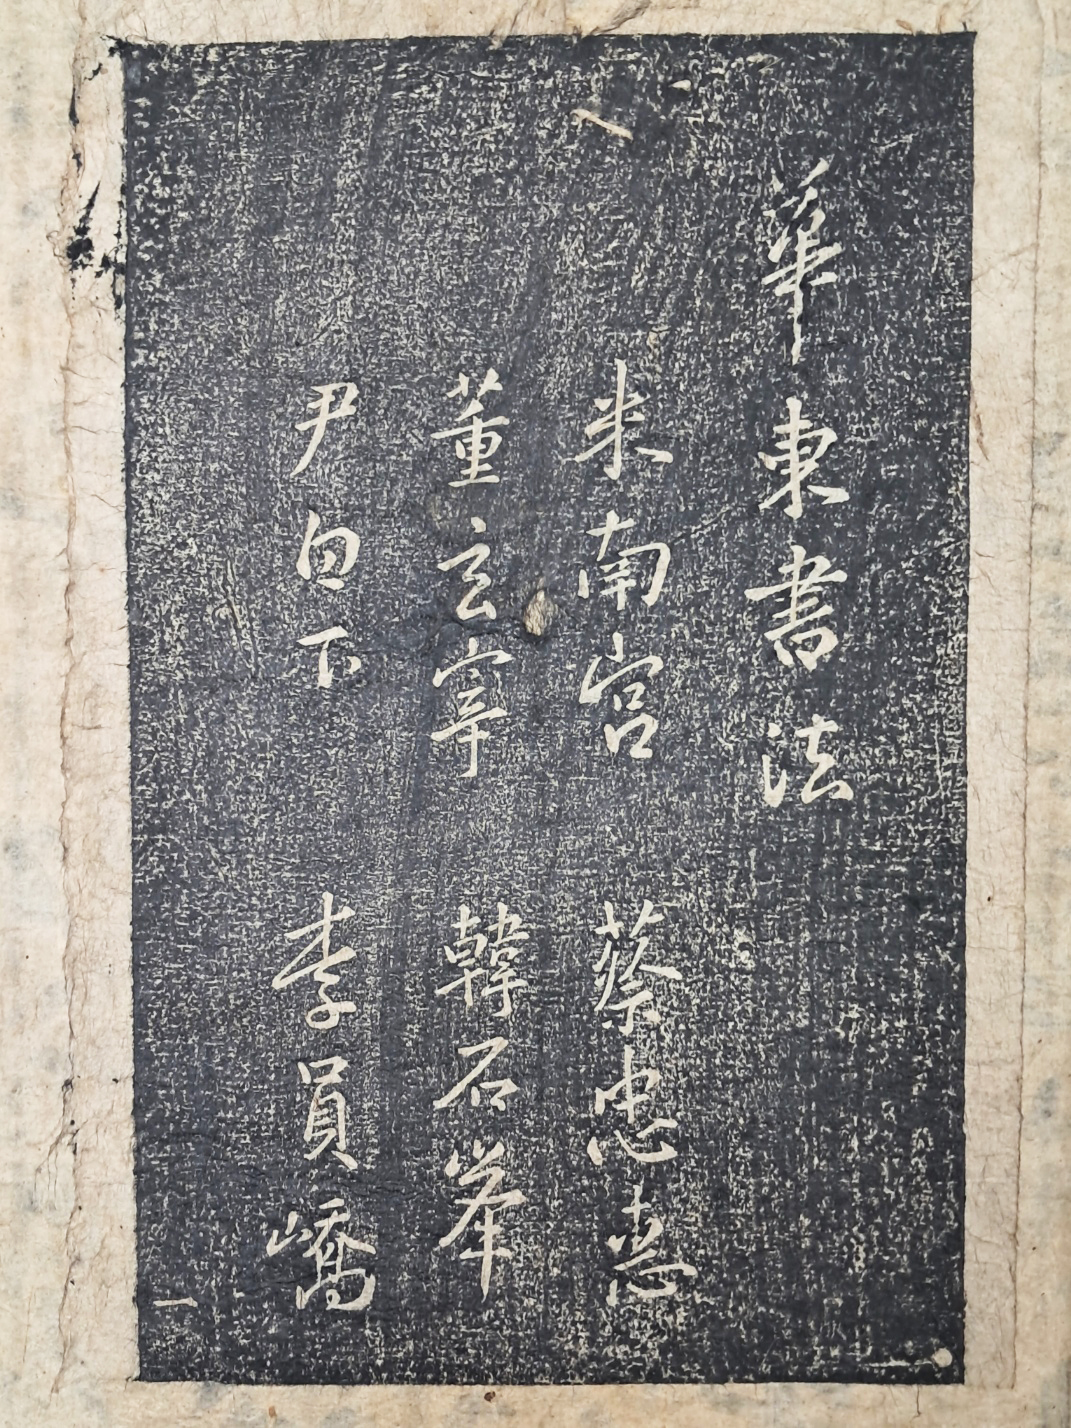 華東書法
米南宮 蔡忠惠
董玄宰 韓石峯
尹白下 李員嶠
一